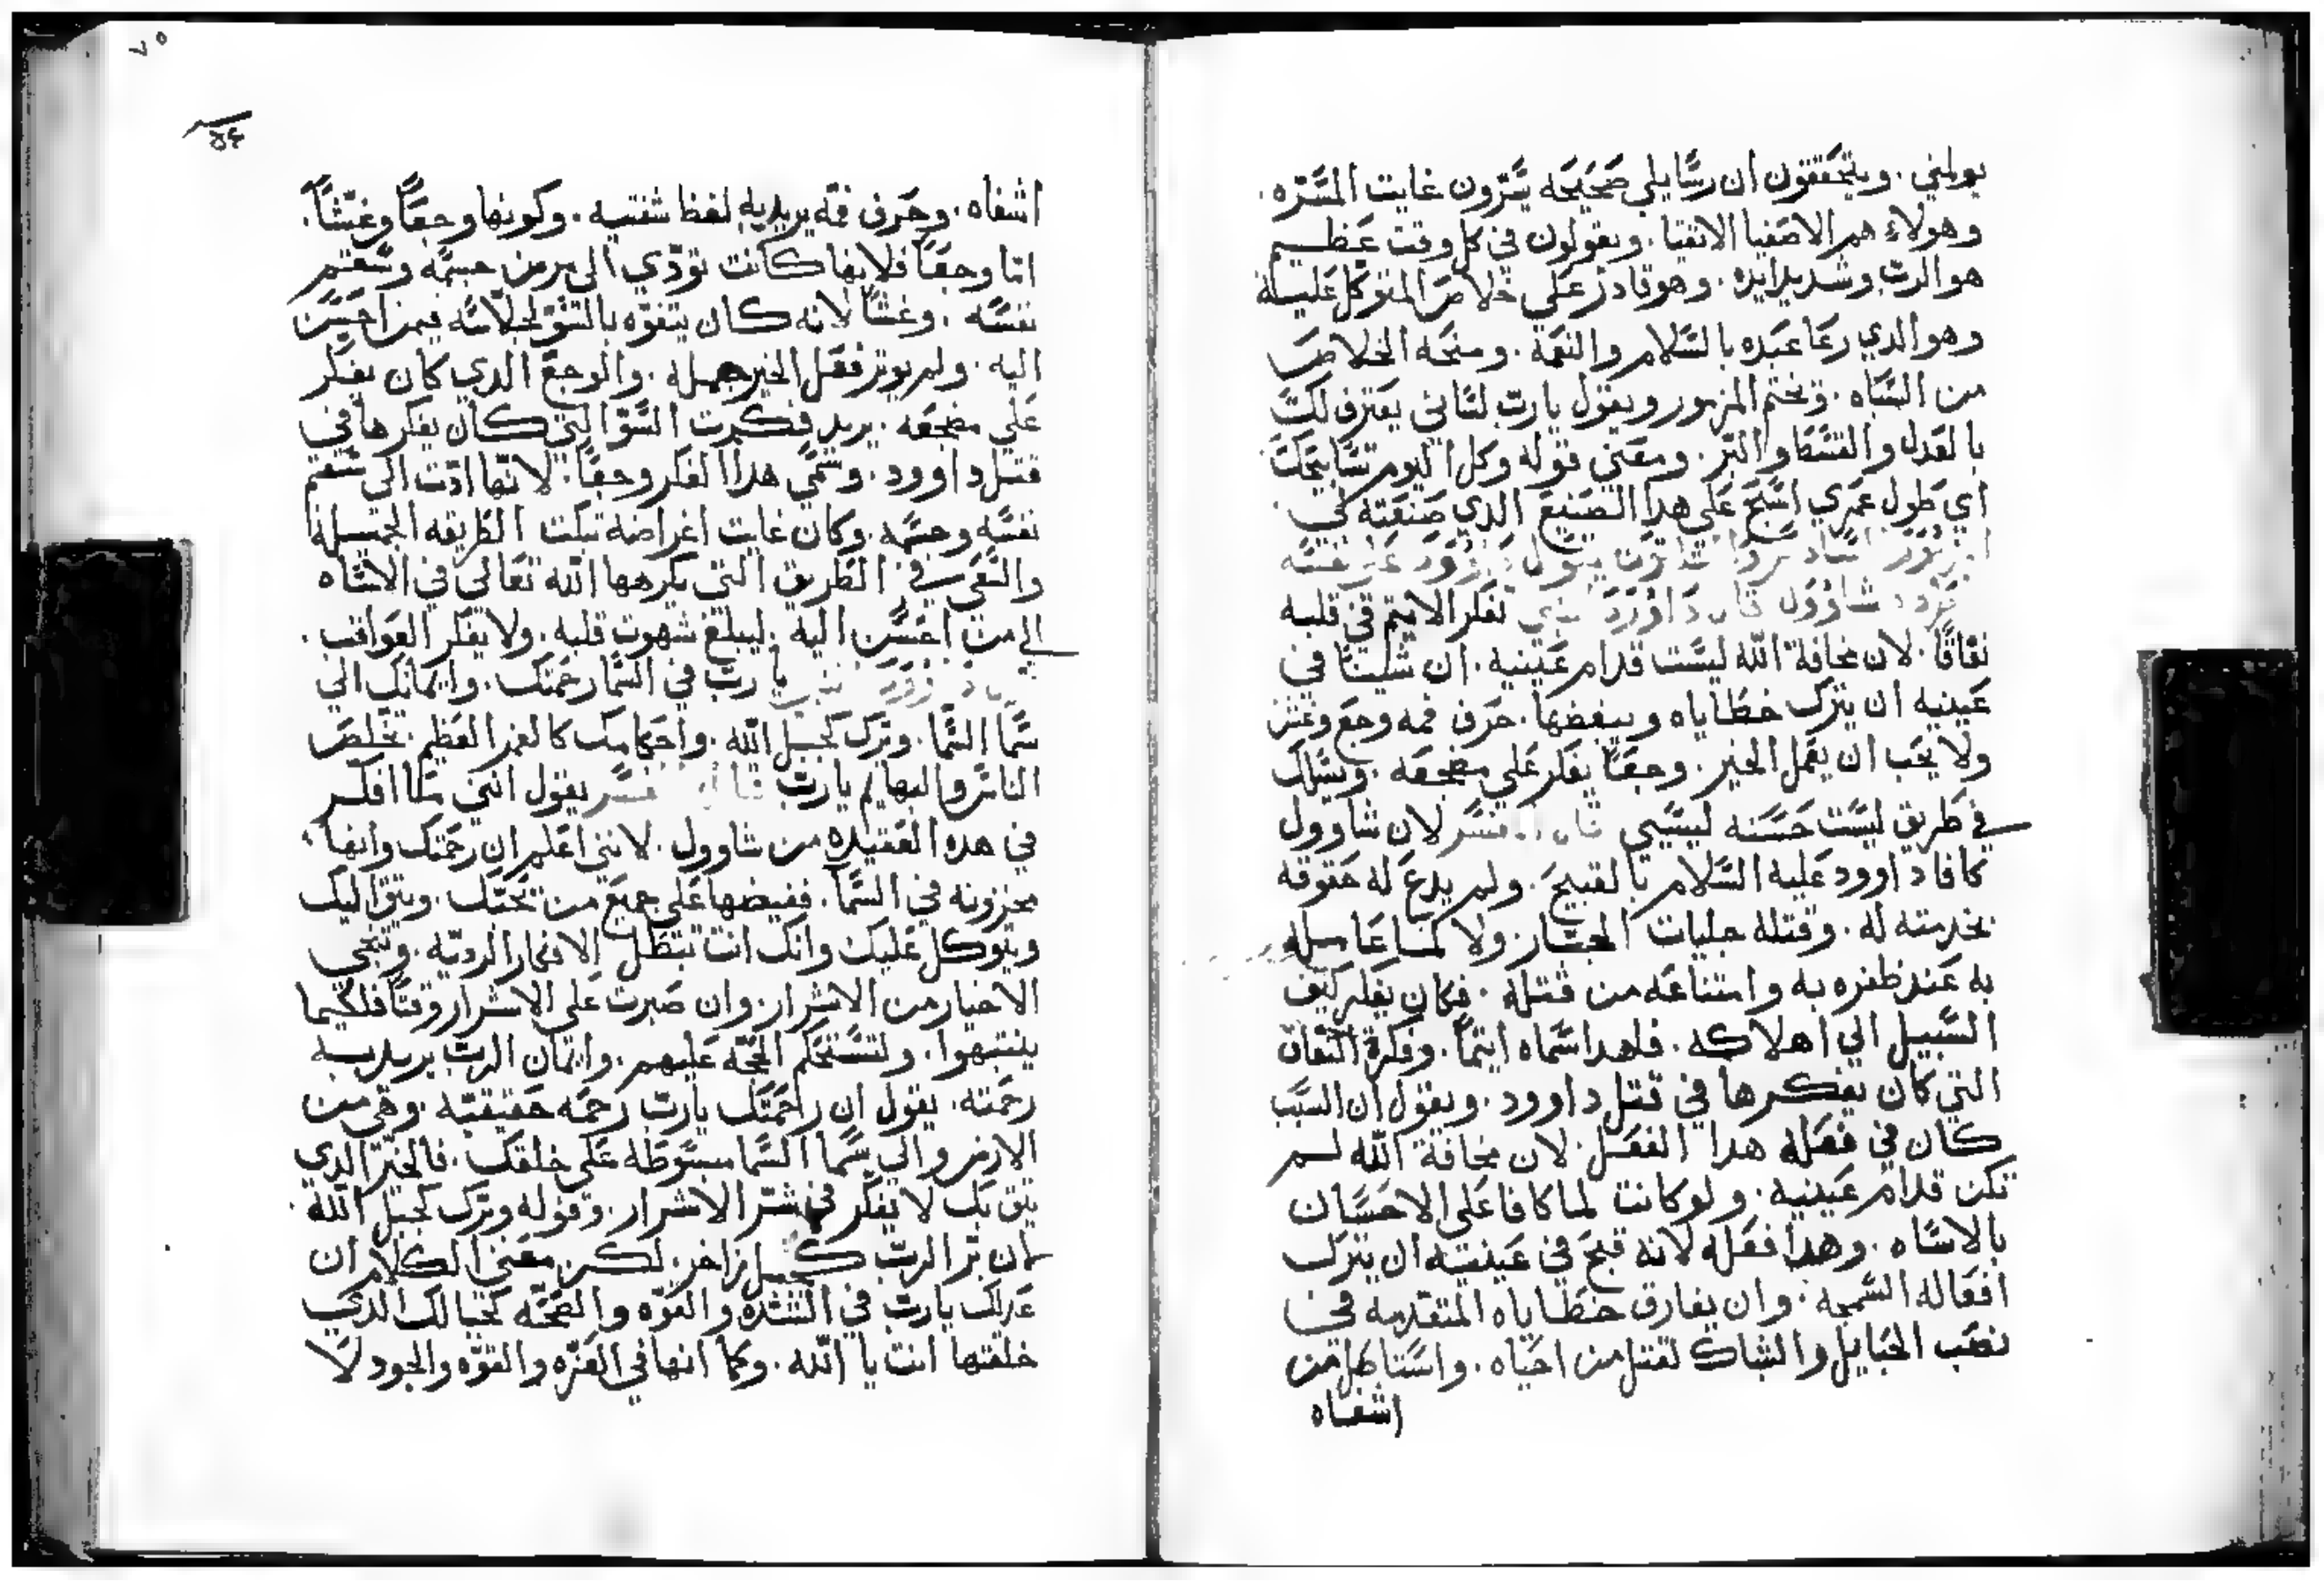 يولمني. ويتحققون ان رسايلي صحيحه يسرون غايت المسره.
وهولاء هم الاصفيا الاتقيا. ويقولون في كل وقت عظيم
هو الرب وشديد ايده. وهو قادر علي خلاص المتوكل عليه
وهو الدي رعا عبده بالسلام والنعمه. ومنحه الخلاص
من الشباه. وتختم المزمور ويقول يارب لساني يعترف لك
بالعدل والقسط والبر. ومعني قوله وكل اليوم تسابيحك
اي طول عمري اسبح علي هدا الصنيع الدي صنعته لي.
شاوول قال داوود النبي تفكر الاثيم في قلبه
نفاقا. لان مخافة الله ليست قدام عينيه. ان شينا في
عينيه ان يترك خطاياه ويبغضها. حرف فمه وجع وغش
ولا يحب ان يعمل الخير. وجعا يفكر علي مضجعه. ويسلك
في طريق ليست حسنه ليسي قال المفسر لان شاوول
كافا داوود عليه السلام بالقبيح. ولم يدع له حقوقه
بخدمته له. وقتله جليات الجبار. ولا لما عامله
به عند ظفره به وامتناعه من قتله. فكان يفكر كيف
السبيل الي اهلاكه. فلهدا سماه اثيما. وفكرة النفاق
التي كان يفكرها في قتل داوود. ويقول ان السبب
كان في فعله هدا الفعل. لان مخافة الله لم
تكن قدام عينيه. ولو كانت لما كافا علي الاحسان
بالاساه. وهدا فعله لانه قبح في عينيه ان يترك
افعاله السمجه. وان يفارق خطاياه المتقدمه في
نصب الحبايل والشباك لقتل من احياه. واستاصل من
اشفاه
٧٥
اشفاه. وحرف فمه يريد به لفظ شفتيه. وكونها وجعا وغشا.
اما وجعا فلانها كانت تودي الي مرض جسمه وسقم
نفسه. وغشا لانه كان يتفوه بالسو لجلاسه فيمن احسن
اليه. ولم يوثر فعل الخير جمله. والوجع الدي كان يفكر
علي مضجعه. يريد فكرت السو التي كان يفكرها في
قتل داوود. وسمي هدا الفكر وجعا. لانها ادت الي سقم
نفسه وجسمه. وكان غايت اغراضه تبكت الطريقه الجميله
والسعي في الطريق التي يكرهها الله تعالي في الاساه
الي من احسن اليه. ليبلغ شهوت قلبه. ولا يفكر العواقب.
يارب في السما رحمتك. وايمانك الي
سما السما. وبرك كجبل الله. واحكامك كالغمر العظيم. تخلص
الناس والبهايم يارب قال المفسر يقول انني لما افكر
في هده العتيده من شاوول. لانني اعلم ان رحمتك وانها
مخزونه في السما. ففيضها علي جميع من تحتك. ويتق اليك
ويتوكل عليك وانك انت تبطل الافكار الرديه. وتنجي
الاخيار من الاشرار. وان صبرت علي الاشرار وقتا فلكيما
ينتبهوا. ولتستحكم الحجه عليهم. وايمان الرب يريد به
رحمته. يقول ان رحمتك يارب رحمه حقيقيه. وهي من
الارض والي سما السما مبسوطه علي خلقك. فالخير الدي
يتق بك لا يفكر في شر الاشرار. وقوله وبرك كجبل الله
لان بر الرب كجبل زاخر. لكن معني الكلام ان
عدلك يارب في الشده والقوه والصحه كجبالك الدي
خلقتها انت يا الله. وكما انها في العزه والقوه والجود لا